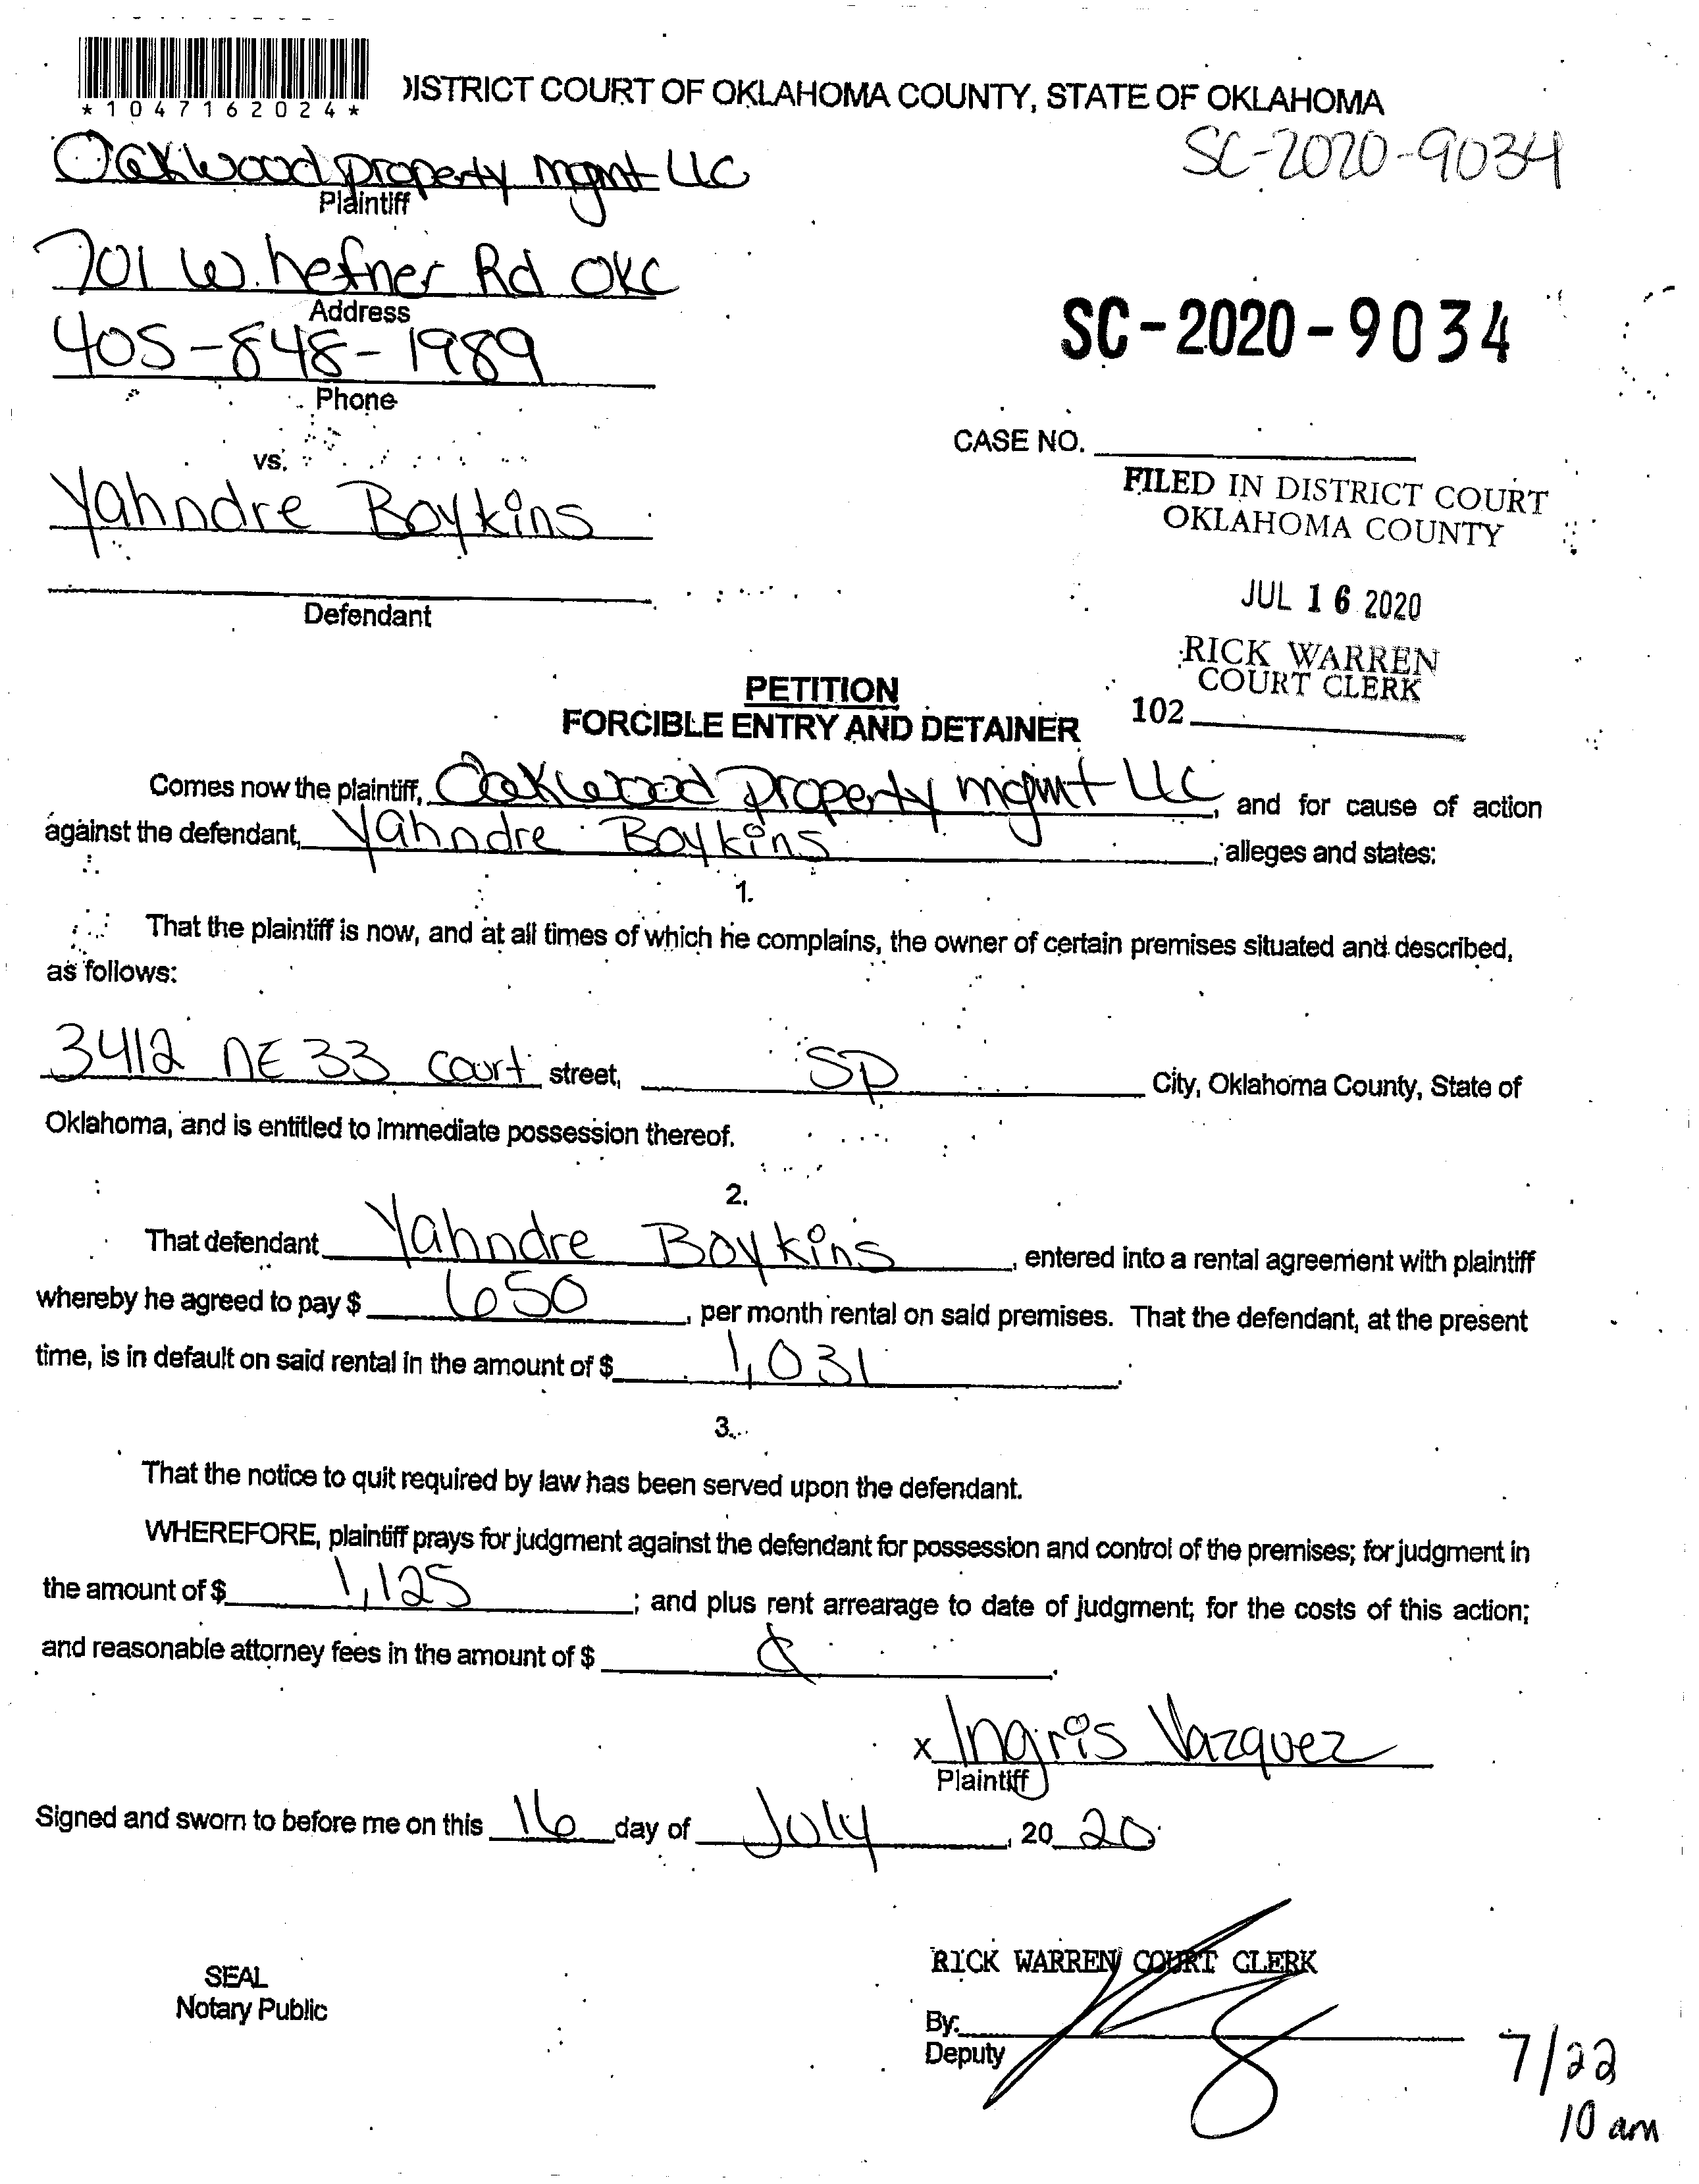 *1047162024*
DISTRICT COURT OF OKLAHOMA COUNTY, STATE OF OKLAHOMA
SC-2020-9034
Oakwood property mgmt LLC
Plaintiff
701 W. hefner Rd OKC
Address
405-848-1989
Phone
SC-2020-9034
CASE NO.
vs.
Yahndre Boykins
Defendant
FILED IN DISTRICT COURT
OKLAHOMA COUNTY
JUL 16 2020
RICK WARREN
COURT CLERK
102
PETITION
FORCIBLE ENTRY AND DETAINER
Comes now the plaintiff, Oakwood property mgmt LLC, and for cause of action
against the defendant, Yahndre Boykins, alleges and states:
1.
That the plaintiff is now, and at all times of which he complains, the owner of certain premises situated and described,
as follows:
3412 NE 33 court street, SP City, Oklahoma County, State of
Oklahoma, and is entitled to immediate possession thereof.
2.
That defendant Yahndre Boykins, entered into a rental agreement with plaintiff
whereby he agreed to pay $ 650, per month rental on said premises. That the defendant, at the present
time, is in default on said rental in the amount of $ 1,031.
3.
That the notice to quit required by law has been served upon the defendant.
WHEREFORE, plaintiff prays for judgment against the defendant for possession and control of the premises; for judgment in
the amount of $ 1,125; and plus rent arrearage to date of judgment; for the costs of this action;
and reasonable attorney fees in the amount of $
x Ingris Vazquez
Plaintiff
Signed and sworn to before me on this 16 day of July, 20 20
SEAL
Notary Public
RICK WARREN COURT CLERK
By:
Deputy
7/22
10 am